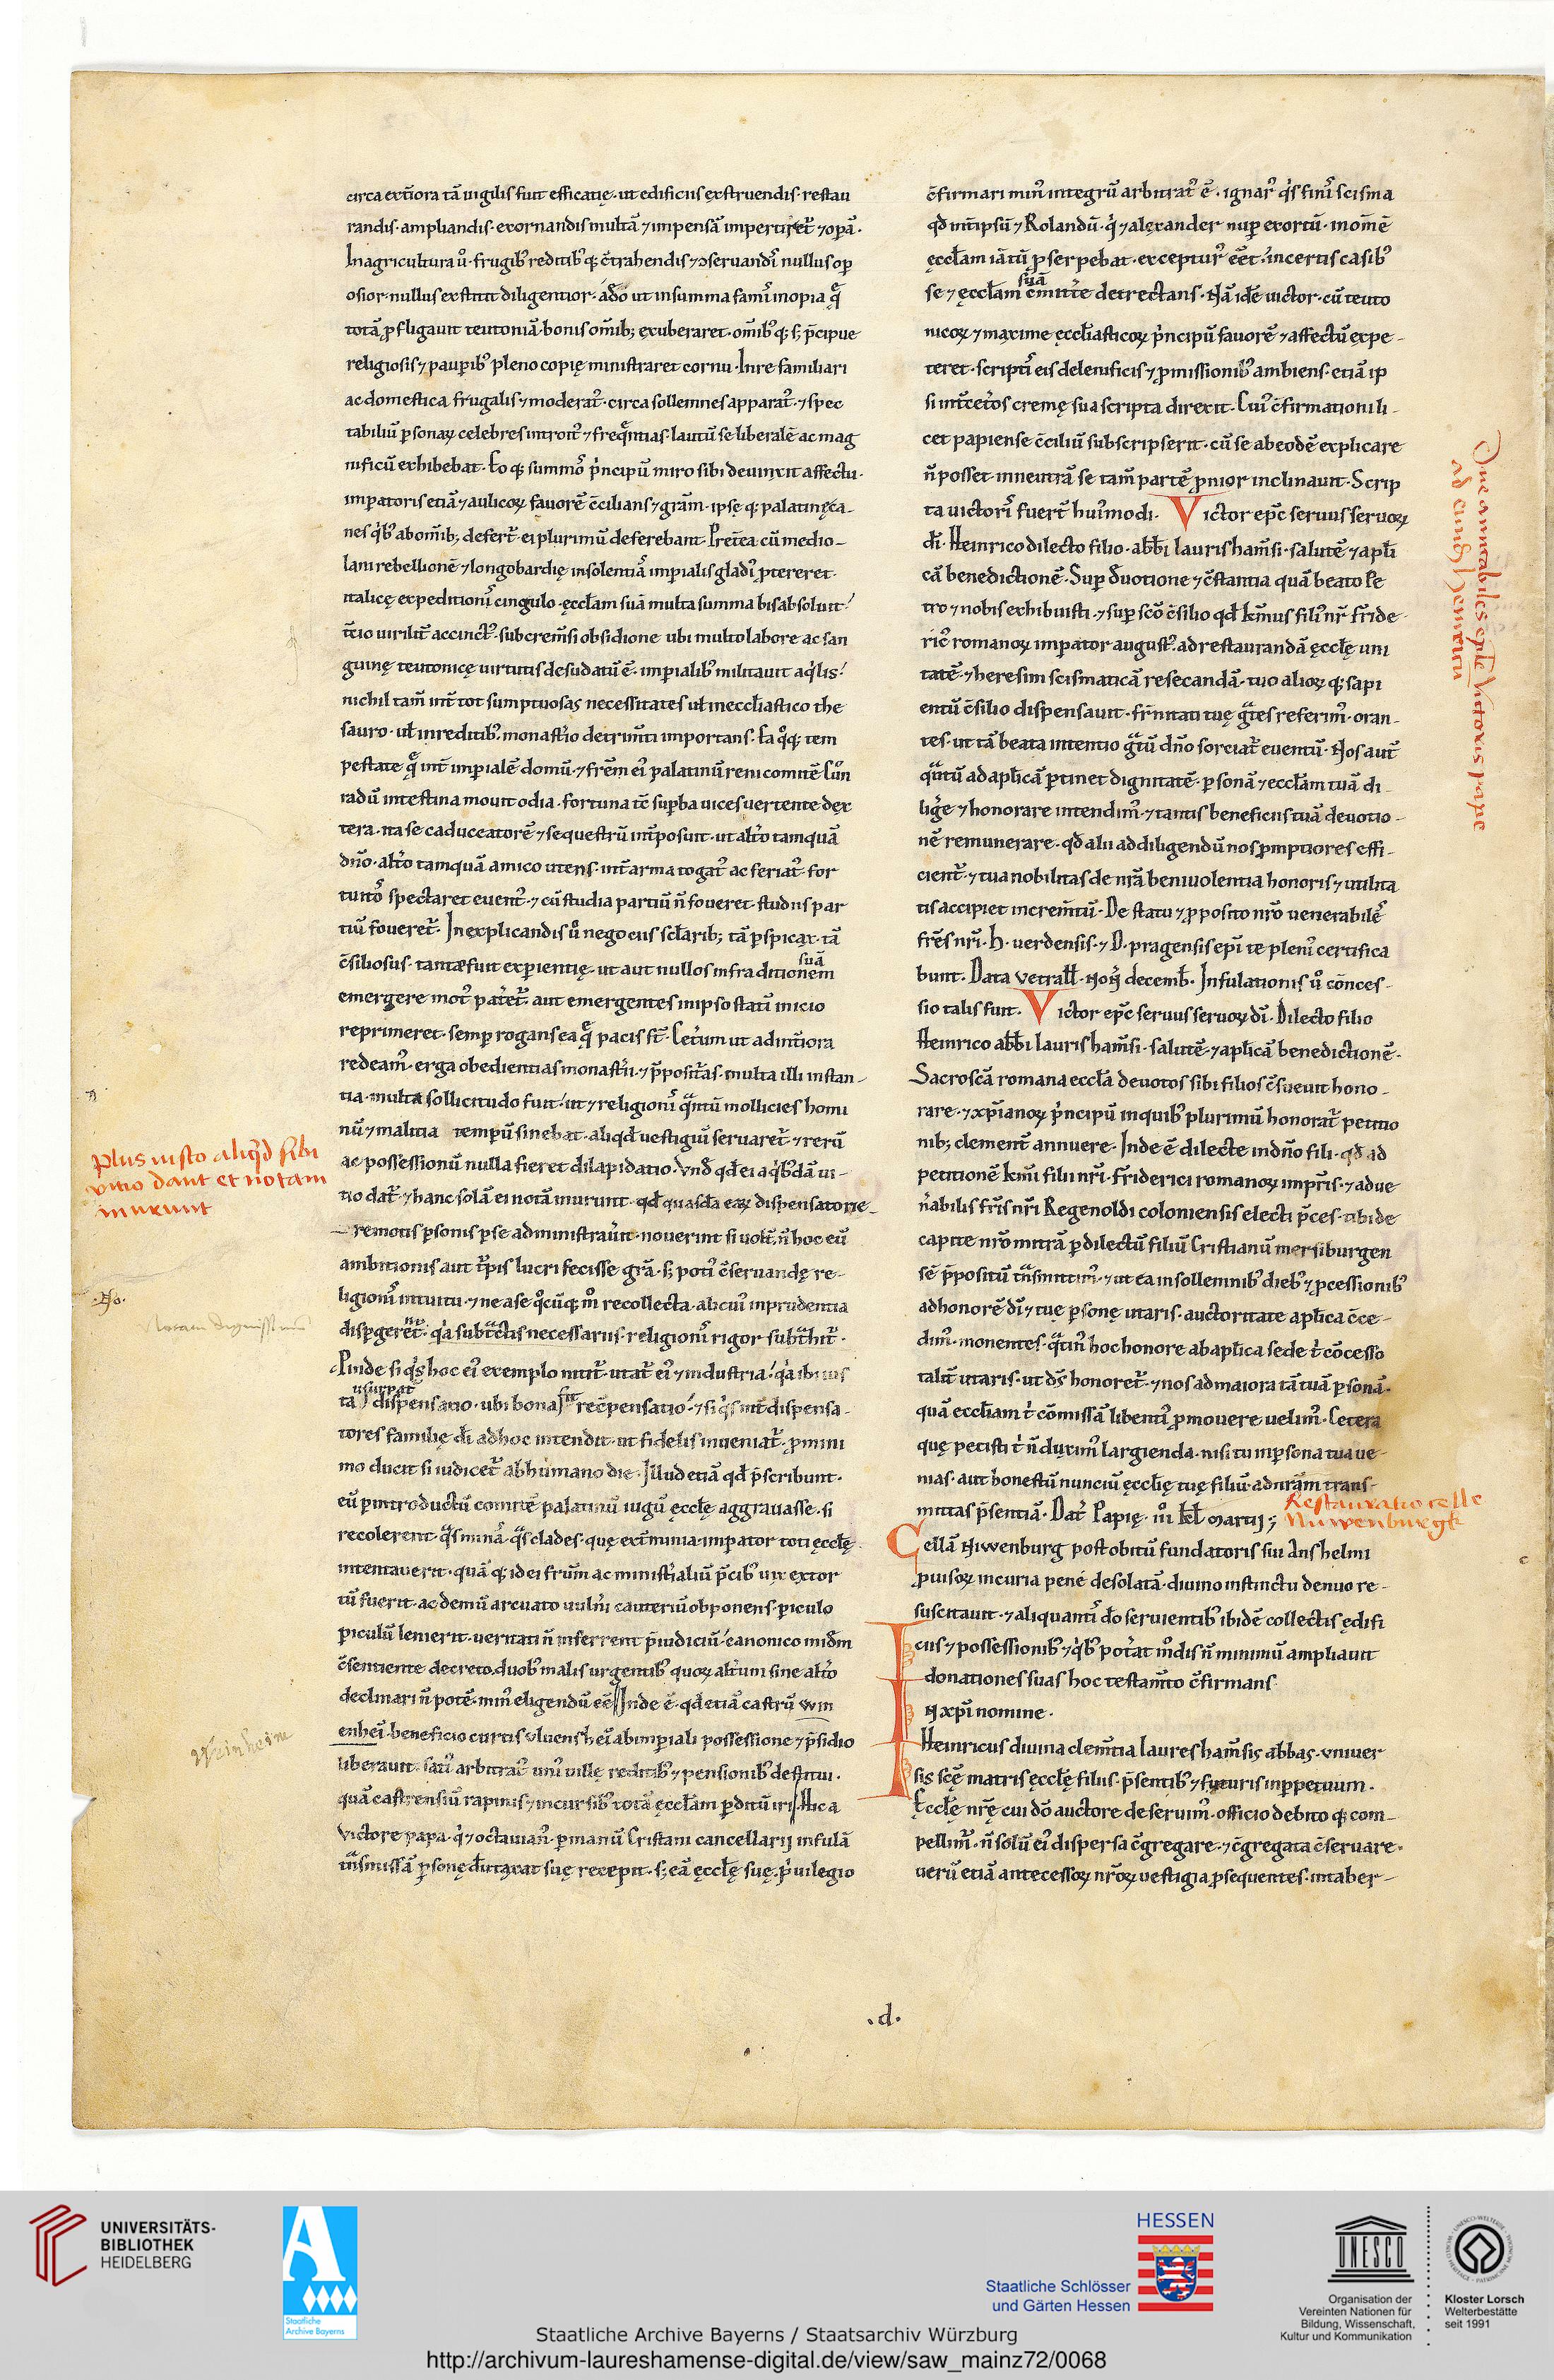 circa ext̄iora tā uigilis fuit efficatię. ut edificiis exstruendis. restau
randis. ampliandis. exornandis multā ⁊ impensā impertiret᷑ ⁊ opā.
In agricultura ů. frugib᷒ redditib᷒ q; c̄trahendis ⁊ ɔseruandis nullus op
osior. nullus exstitit diligentior. adeo ut in summa famis inopia
totā ꝓfligauit teutoniā. bonis om̄ib; exuberaret. om̄ib᷒ q; s; p̄cipue
religiosis ⁊ paupib᷒ pleno copię ministraret cornu. In re familiari
ac domestica frugalis ⁊ moderat᷒. circa sollemnes apparat᷒. ⁊ spec
tabiliū ꝑsonaꝝ celebres introit᷒ ⁊ freq̄ntias. lautū se liberalē ac mag
nificū exhibebat. Eo q; summos p̍ncipū miro sibi deuinxit affectu.
impatoris etiā ⁊ aulicoꝝ fauorē c̄cilians ⁊ grām. ipse q; palatinęca-
nes q̍b᷒ ab om̄ib; defert᷑ ei plurimū deferebant. Pret̄ea cū medio-
lani rebellionē ⁊ longobardię insolentiā impialis gladi᷒ ꝓtereret.
italicę expeditionis cingulo. ęcct̄am suā multa summa bis absoluit.
t̄cio uirilit̄ accinct᷒. sub crem̄si obsidione ubi multo labore ac san
guinę teutonicę uirtutis desudatū ē. impialib᷒ militauit aq̍lis.
nichil tam̄ int̄ tot sumptuosas necessitates uł in ecct̄iastico the
sauro. uł in redditib᷒ monast̍io detrim̄ti importans. Ea q̊q; tem
pestate q̄ int̄ impialē domū ⁊ fr̄em ei᷒ palatinū reni comitē Cůn
radū intestina mouit odia. fortuna tc̄ supba uices uertente dex
tera. ita se caduceatorē ⁊ sequestrū int̄posuit. ut alt̍o tamquā
dn̄o. alt̍o tamquā amico utens. int̄ arma togat᷒ ac feriat᷒. for
tuitos spectaret euent᷒. ⁊ cū studia partiū n̄ foueret. studiis par
tiū foueret᷑. In explicandis ů negociis sc̄larib; tā pspicax. tā
c̄siliosus. tantæ fuit experientię. ut aut nullos infra ditionem suā
emergere mot᷒ patet᷑. aut emergentes in ipso statim inicio
reprimeret. semp rogans ea q̄ pacis st̄. Cet̍um ut ad int̄iora
redeam᷒. erga obedientias monast̍ii. ⁊ p̄posit̍as. multa illi instan-
tia. multa sollicitudo fuit. ut ⁊ religionis q̄ntū mollicies homi
nū ⁊ malitia tempū sinebat. aliqd̄ uestigiū seruaret᷑. ⁊ rerū
ac possessionū nulla fieret dilapidatio. Vnd̄ qd̄ ei a q̍b᷒dā ui-
tio dat᷑. ⁊ hanc solā ei notā inurunt. qd̄ quasdā eaꝝ dispensatorie-
remotis psonis p se administrauit. nouerint si uolt̄. n̄ hoc eū
ambitionis aut t̍pis lucri fecisse gr̄a. s; poti᷒ c̄seruandę re-
ligionis intuitu. ⁊ ne a se q̊cūq; m̊ recollecta. alicui᷒ inprudentia
dispgerent᷑. q̍a subt̄ctis necessariis. religionis rigor subt̄hit᷑.
Pinde si q̍s hoc ei᷒ exemplo nitit᷑. utat᷑ ei᷒ ⁊ industria. q̍a ibi ius
ta usurpat᷑ dispensatio. ubi bona fit rec̄pensatio. ⁊ si q̍s int̄ dispensa-
tores familię dī ad hoc intendit. ut fidelis inueniat᷑. ꝓ mini
mo ducit si iudicet᷑ ab humano die. Illud etiā qd̄ p̄scribunt.
eū p introductū comitē palatinū iugū ęccłę aggrauasse. si
recolerent q̄s minas. q̄s clades. que ext̍minia impator toti ęccłę
intentauerit. quā q; id ei fr̄um ac minist̍aliū p̄cib᷒ uix extor
tū fuerit. ac demū arcuato uuln̍i cauteriū obponens. piculo
piculū lenierit. ueritati n̄ inferrent p̄iudiciū. canonico in id̄m
c̄sentiente decreto. duob᷒ malis urgentib᷒ quoꝝ alt̍um sine alt̍o
declinari n̄ pot̄. min᷒ eligendū eē. Inde ē. qd̄ etiā castrū win
enhei. beneficio curtis uluenshei ab impiali possessione ⁊ p̄sidio
liberauit. sati᷒ arbitrat᷒ uni᷒ uillę redditib᷒ ⁊ pensionib᷒ destitui.
quā castrensiū rapinis ⁊ incursib᷒ totā ęccłam pditū iri. Hic a
Victore papa. q̍ ⁊ octauian᷒. p manū Cristani cancellarij infulā
t̄nsmissā psonę dūtaxat suę recepit. s; eā ęccłę suę. p̍uilegio
plus iusto aliq̍d sibi
vitio dant et notam
inurunt
Notam dignissimā
Weinheim
c̄firmari min᷒ integrū arbitrat᷒ ē. ignar᷒ q̍s finis scisma
qd̄ int̄ ipsū ⁊ Rolandū. q̍ ⁊ alexander nup exortū. in om̄ē
ęccłam iātū pserpebat. exceptur᷒ eēt. incertis casib᷒
se ⁊ ęccłam suā c̄mitt̍e detrectans. Nā idē uictor. cū teuto
nicoꝝ ⁊ maxime ęccłiasticoꝝ p̍ncipū fauorē ⁊ affectū expe-
teret. scriptis eis delenificis ⁊ ꝓmissionib᷒ ambiens. etiā ip
si int̄ cet̍os cremę sua scripta direxit. Cui᷒ c̄firmationi li-
cet papiense c̄ciliū subscripserit. cū se ab eodē explicare
n̄ posset. in neutrā se tam̄ partē ꝓnior inclinauit. Scrip
ta uictoris fuert̄ hui᷒modi. Victor ep̄c seruus seruoꝝ
dī. Heinrico dilecto filio. abb̄i laurisham̄si. salutē ⁊ apłi
cā benedictionē. Sup d̄uotione ⁊ c̄stantia quā beato Pe
tro ⁊ nobis exhibuisti. ⁊ sup sc̄o c̄silio qd̄ km̄us fili᷒ nr̄ fr̄ide
ric᷒ romanoꝝ imperator august᷒. ad restaurandā ęccłę uni
tatē. ⁊ heresim scismaticā resecandā. tuo alioꝝ q; sapi
entū c̄silio dispensauit. fr̄nitati tuę gr̄tes referim᷒. oran-
tes. ut tā beata intentio gr̄tū dn̄o sorciat᷑ euentū. Nos aut̄
q̄ntū ad apłicā ptinet dignitatē. psonā ⁊ ecclam tuā di-
lig̍e ⁊ honorare intendim᷒. ⁊ tantis beneficiis tuā deuotio-
nē remunerare. qd̄ alii ad diligendū nos ꝓmptiores effi-
cient᷑. ⁊ tua nobilitas de nr̄a beniuolentia honoris ⁊ utilita
tis accipiet increm̄tū. De statu ⁊ ꝓposito nr̄o uenerabiles
fr̄es nr̄i. h. uerdensis. ⁊ D. pragensis ep̄i te pleni᷒ certifica
bunt. Data vetrałł. Noñ decemb̄. Infulationis ů conces-
sio talis fuit. Victor ep̄c seruus seruoꝝ dī. Dilecto filio
Heinrico abb̄i laurisham̄si. salutē. ⁊ apłicā benedictionē.
Sacrosc̄ā romana ecclā deuotos sibi filios c̄sueuit hono-
rare. ⁊ xp̄ianoꝝ p̍ncipū in quib᷒ plurimū honorat᷑ petitio
nib; clement̄ annuere. Inde ē dilecte in dn̄o fili. qd̄ ad
petitionē km̄i filii nr̄i. fr̄iderici romanoꝝ imp̄ris. ⁊ ad ue
n̄abilis fr̄is nr̄i Regenoldi coloniensis electi p̄ces. tibi de
capite nr̄o mitrā p dilectū filiū Cristianū mersiburgen
sē p̄positū t̄nsmittim᷒. ⁊ ut ea in sollemnib᷒ dieb᷒ ⁊ ꝓcessionib᷒
ad honorē dī ⁊ tuę psonę utaris. auctoritate aplica c̄ce-
dim᷒. monentes. q̄tin᷒ hoc honore ab aplica sede t̍ c̄cesso
talit̄ utaris. ut ds̄ honoret᷑. ⁊ nos ad maiora tā tuā psonā.
quā eccłiam t̍ c̄missā libenti᷒ ꝓmouere uelim᷒. Cetera
quę petisti t̍ n̄ duxim᷒ largienda. nisi tu in psona tua ue-
nias. aut honestū nunciū ęccłię tuę filiū. ad nr̄am trans-
mittas p̄sentiā. Dat̍ Papię. iii̊ kł̄ martij;
Cellā Niwenburg post obitū fundatoris sui Anshelmi
ꝓuisoꝝ incuria pene desolatā. diuino instinctu denuo re-
suscitauit. ⁊ aliquantis do seruientib᷒ ibidē collectis ędifi
ciis ⁊ possessionib᷒ ⁊ q̍b᷒ pot̍at m̊dis n̄ minimū ampliauit
donationes suas hoc testam̄to c̄firmans
IN xp̄i nomine.
Heinricus diuina clem̄tia lauresham̄sis abbas. vniuer
sis scę̄ matris ęccłę filiis. p̄sentib᷒ ⁊ futuris inppetuum.
Ęccłę nr̄ę cui dō auctore deseruim᷒. officio debito q; com-
pellim᷒. n̄ solū ei᷒ dispersa c̄gregare. ⁊ c̄gregata c̄seruare.
uerū etiā antecessoꝝ nr̄oꝝ uestigia ꝓsequentes. intaber-
Due annotabiles epłe Victoris pape
ad eundē henricū
Restauratio celle
Nuwenburgk
.d.
UNIVERSITÄTS-
BIBLIOTHEK
HEIDELBERG
Staatliche
Archive Bayerns
HESSEN
Staatliche Schlösser
und Gärten Hessen
UNESCO
Organisation der
Vereinten Nationen für
Bildung, Wissenschaft,
Kultur und Kommunikation
Kloster Lorsch
Welterbestätte
seit 1991
Staatliche Archive Bayerns / Staatsarchiv Würzburg
http://archivum-laureshamense-digital.de/view/saw_mainz72/0068